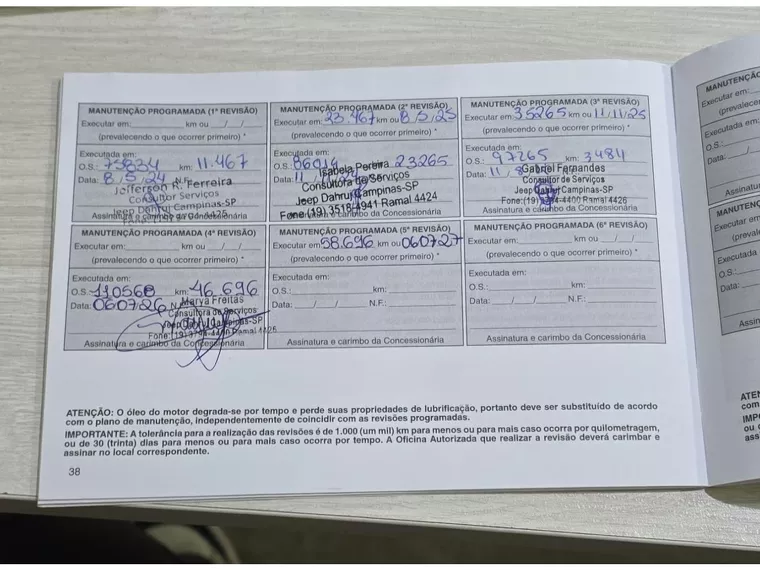 MANUTENÇÃO PROGRAMADA (1ª REVISÃO)
Executar em: km ou __/__/__
(prevalecendo o que ocorrer primeiro) *
Executada em:
O.S.: 73824 km: 11.467
Data: 8/5/24
Jefferson R. Ferreira
Consultor Serviços
Jeep Dahruj Campinas-SP
Assinatura e carimbo da Concessionária
MANUTENÇÃO PROGRAMADA (2ª REVISÃO)
Executar em: 23.467 km ou 8/5/25
(prevalecendo o que ocorrer primeiro) *
Executada em:
O.S.: 23265
Data: 11
Isabela Pereira
Consultora de Serviços
Jeep Dahruj Campinas-SP
Fone:(19) 3518-4941 Ramal 4424
Assinatura e carimbo da Concessionária
MANUTENÇÃO PROGRAMADA (3ª REVISÃO)
Executar em: 35265 km ou 11/11/25
(prevalecendo o que ocorrer primeiro) *
Executada em:
O.S.: 97265 km: 3481
Data: 11/
Gabriel Fernandes
Consultor de Serviços
Jeep Dahruj Campinas-SP
Fone:(19) 4400 Ramal 4426
Assinatura e carimbo da Concessionária
MANUTENÇÃO PROGRAMADA (4ª REVISÃO)
Executar em: km ou __/__/__
(prevalecendo o que ocorrer primeiro) *
Executada em:
O.S.: 110560 km: 46.696
Data: 060726
Marya Freitas
Consultora de Serviços
Jeep Dahruj Campinas-SP
Fone:(19) 4400 Ramal 4426
Assinatura e carimbo da Concessionária
MANUTENÇÃO PROGRAMADA (5ª REVISÃO)
Executar em: 58.696 km ou 060727
(prevalecendo o que ocorrer primeiro) *
Executada em:
O.S.: km:
Data: __/__/__ N.F.:
Assinatura e carimbo da Concessionária
MANUTENÇÃO PROGRAMADA (6ª REVISÃO)
Executar em: km ou __/__/__
(prevalecendo o que ocorrer primeiro) *
Executada em:
O.S.: km:
Data: __/__/__ N.F.:
Assinatura e carimbo da Concessionária
ATENÇÃO: O óleo do motor degrada-se por tempo e perde suas propriedades de lubrificação, portanto deve ser substituído de acordo
com o plano de manutenção, independentemente de coincidir com as revisões programadas.
IMPORTANTE: A tolerância para a realização das revisões é de 1.000 (um mil) km para menos ou para mais caso ocorra por quilometragem,
ou de 30 (trinta) dias para menos ou para mais caso ocorra por tempo. A Oficina Autorizada que realizar a revisão deverá carimbar e
assinar no local correspondente.
38